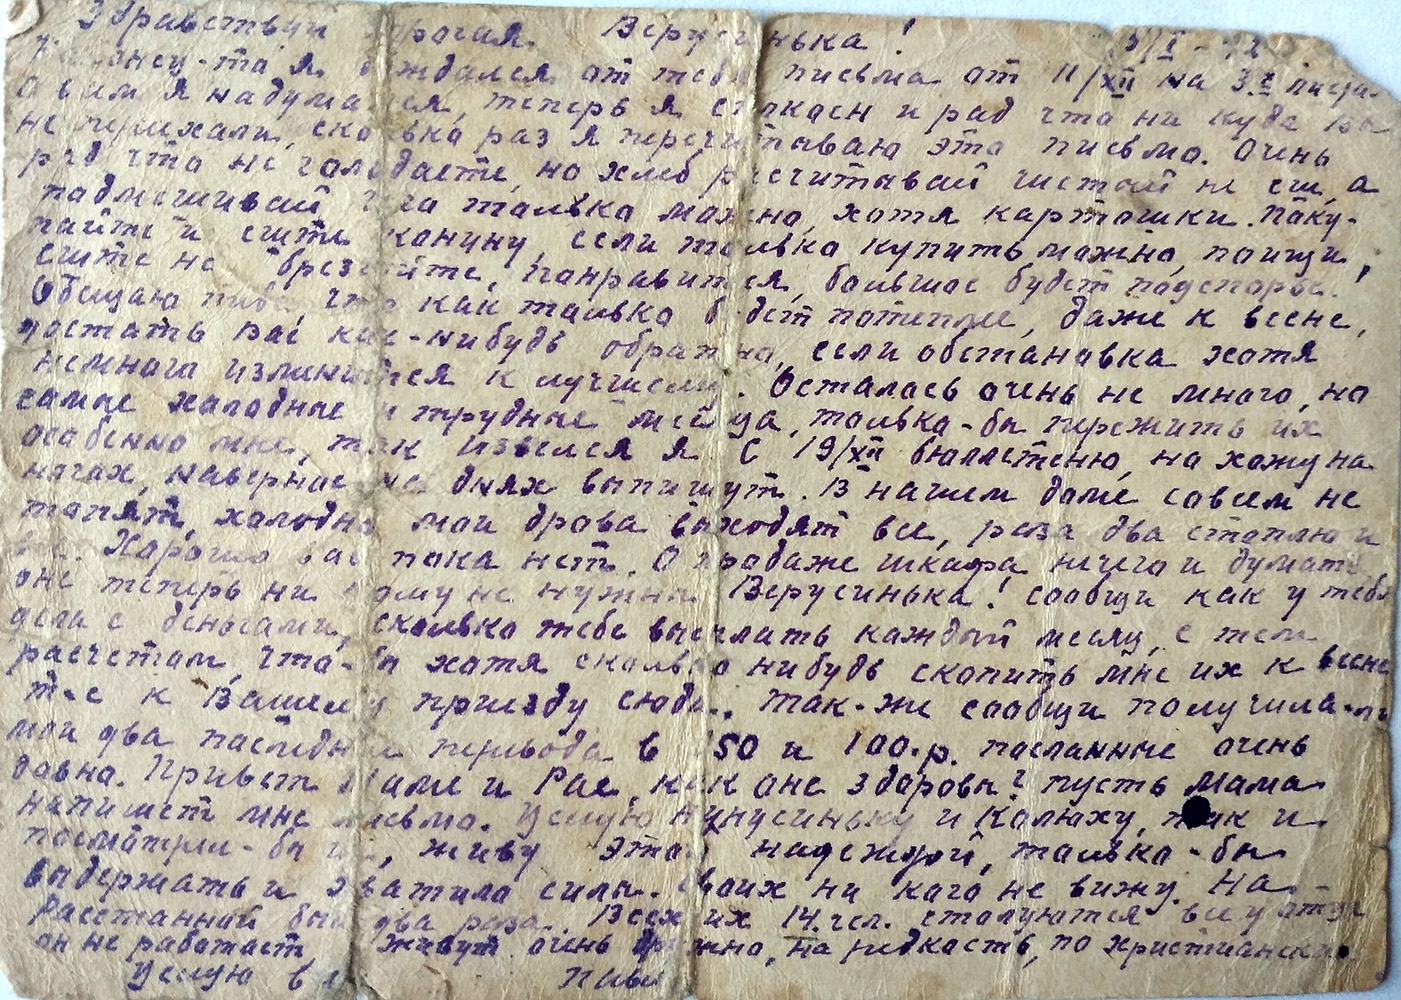 Здравствуй дорогая Верусинька! 5/I-42
Наконец-то я дождался от тебя письма от 11/XII на 3х лист.
О вам я надумался, теперь я спакоен и рад что ни куда вы
не приехали, сколько раз я перечитываю это письмо. Очень
рад что не голодаете, но хлеб расчитывай чистый не ешь, а
подмешивай чего только можно, хотя картошки. Поку-
пайте и ешьте конину, если только купить можно, пищи,
ешьте не брезгайте, понравится, большое будет подспорье.
Обещаю тебе, что как только будет потеплее, даже к весне,
достать вас как-нибудь обратно, если обстановка хотя
немного изменится к лучшему. Осталось очень не много, но
самые халодные и трудные месяца, только-бы пережить их
особенно мне, так извелся я. С 19/XII бюллетеню, но хожу на
ногах, наверное на днях выпишут. В нашем доме совсем не
топят, холодно мои дрова выходят все, раза два стоплю и
все. Хорошо вас пока нет. О продаже шкафа нечего и думать
оне теперь ни кому не нужны. Верусинька! сообщи как у тебя
дела с деньгами, сколько тебе высылать каждый месяц, с тем
расчетом что-бы хотя сколько нибудь скопить мне их к весне
т-е к Вашему приезду сюда. Так-же сообщи получила-ли
мои два последние перевода в 150 и 100 р. посланные очень
давно. Привет Маме и Рае, как оне здоровы? пусть Мама
напишет мне письмо. Целую Нунусиньку и Колюху, так и
посмотрел-бы их, живу этой надеждой, только-бы
выдержать и хватило силы. Своих ни кого не вижу. На
Расстанной был два раза. Всех их 14 чел. столуются все у
он не работает. Живут очень дружно, на редкость, по христиански.
Целую Павел